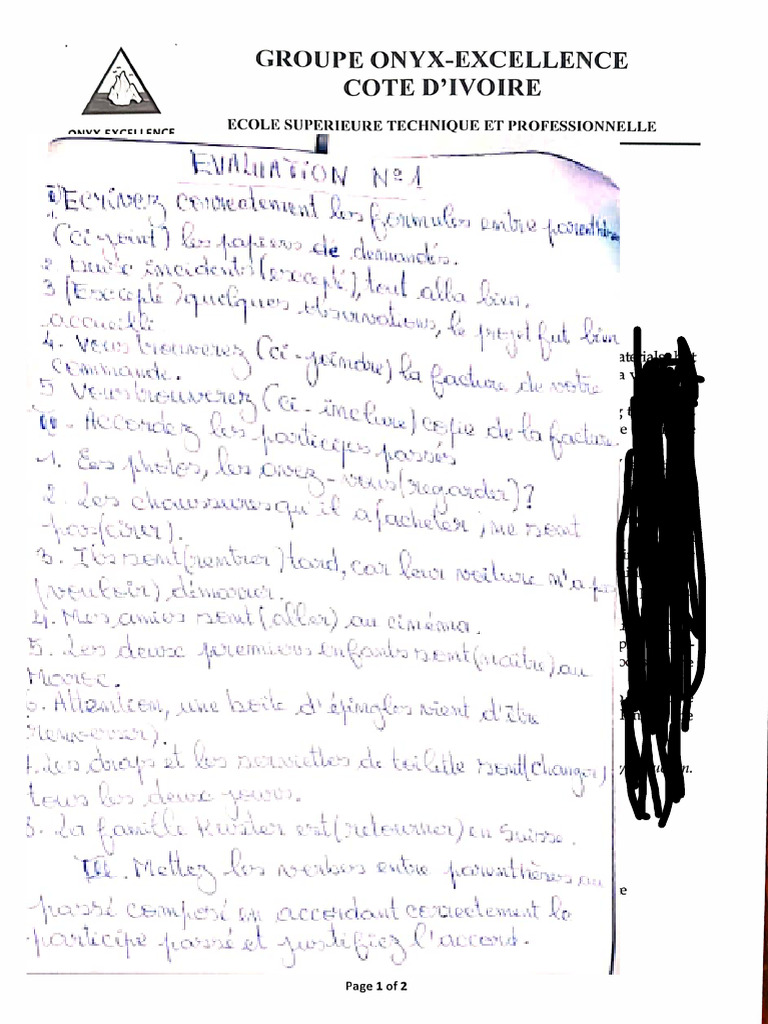 GROUPE ONYX-EXCELLENCE
COTE D'IVOIRE
ONYX EXCELLENCE
ECOLE SUPERIEURE TECHNIQUE ET PROFESSIONNELLE
EVALUATION N°1
I Ecrivez correctement les formules entre parenthèses
(ci-joint) les papiers de demandés.
2 Deux incidents (excepté), tout alla bien.
3 (Excepté) quelques observations, le projet fut bien
accueilli
4. Vous trouverez (ci-joindre) la facture de votre
commande.
5 Vous trouverez (ci-inclure) copie de la facture.
II - Accordez les participes passés
1. Les photos, les avez-vous (regarder)?
2. Les chaussures qu'il a (acheter), ne sont
pas (cirer).
3. Ils sont (rentrer) tard, car leur voiture n'a pas
(vouloir) démarrer.
4. Mes amies sont (aller) au cinéma.
5. Les deux premiers enfants sont (naître) au
Maroc.
6. Attention, une boîte d'épingles vient d'être
(renverser).
7. Les draps et les serviettes de toilette sont (changer)
tous les deux jours.
8. La famille est (retourner) en Suisse.
III. Mettez les verbes entre parenthèses au
passé composé en accordant correctement le
participe passé et justifiez l'accord.
Page 1 of 2